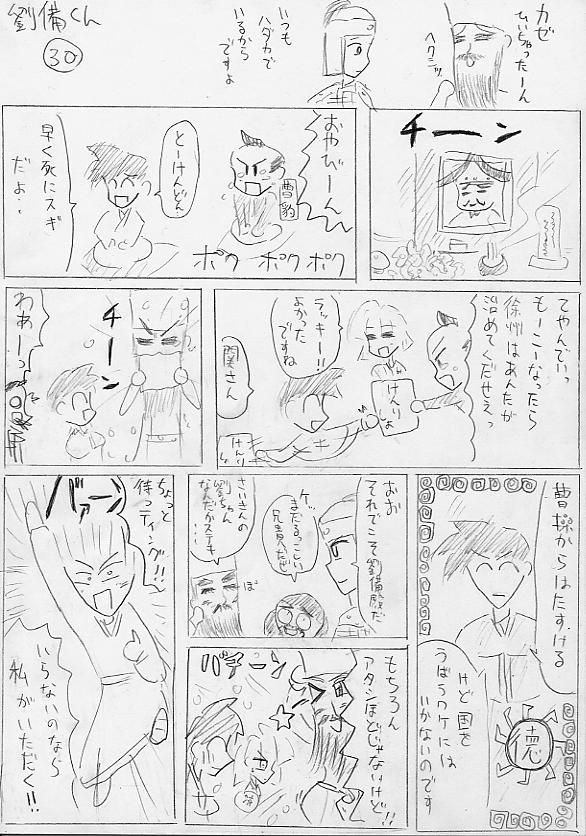 劉備くん
30
カゼ
ひいちゃったーん
ヘクシッ
いつも
ハダカで
いるから
ですよ
チーン
おやびーん
曹豹
とーけんどん
早く死にスギ
だよ・・
ポク ポク ポク
てやんでいっ
もーこーなったら
徐州はあんたが
治めてくだせえっ
けんりしょ
ラッキー!!
よかった
ですね
関さん
けんり
チーン
わあーっ
曹操からはたすける
けど国を
うばうワケには
いかないのです
徳
おお
それでこそ劉備殿だ
ケッ
まだるっこしい
兄貴だぜ
さいきんの
劉ちゃん
なんだかステキ
・・・
ぽ
もちろん
アタシほどじゃないけど!!
バチーン
バァーン
ちょっと
待っティング!!
いらないのなら
私がいただく!!